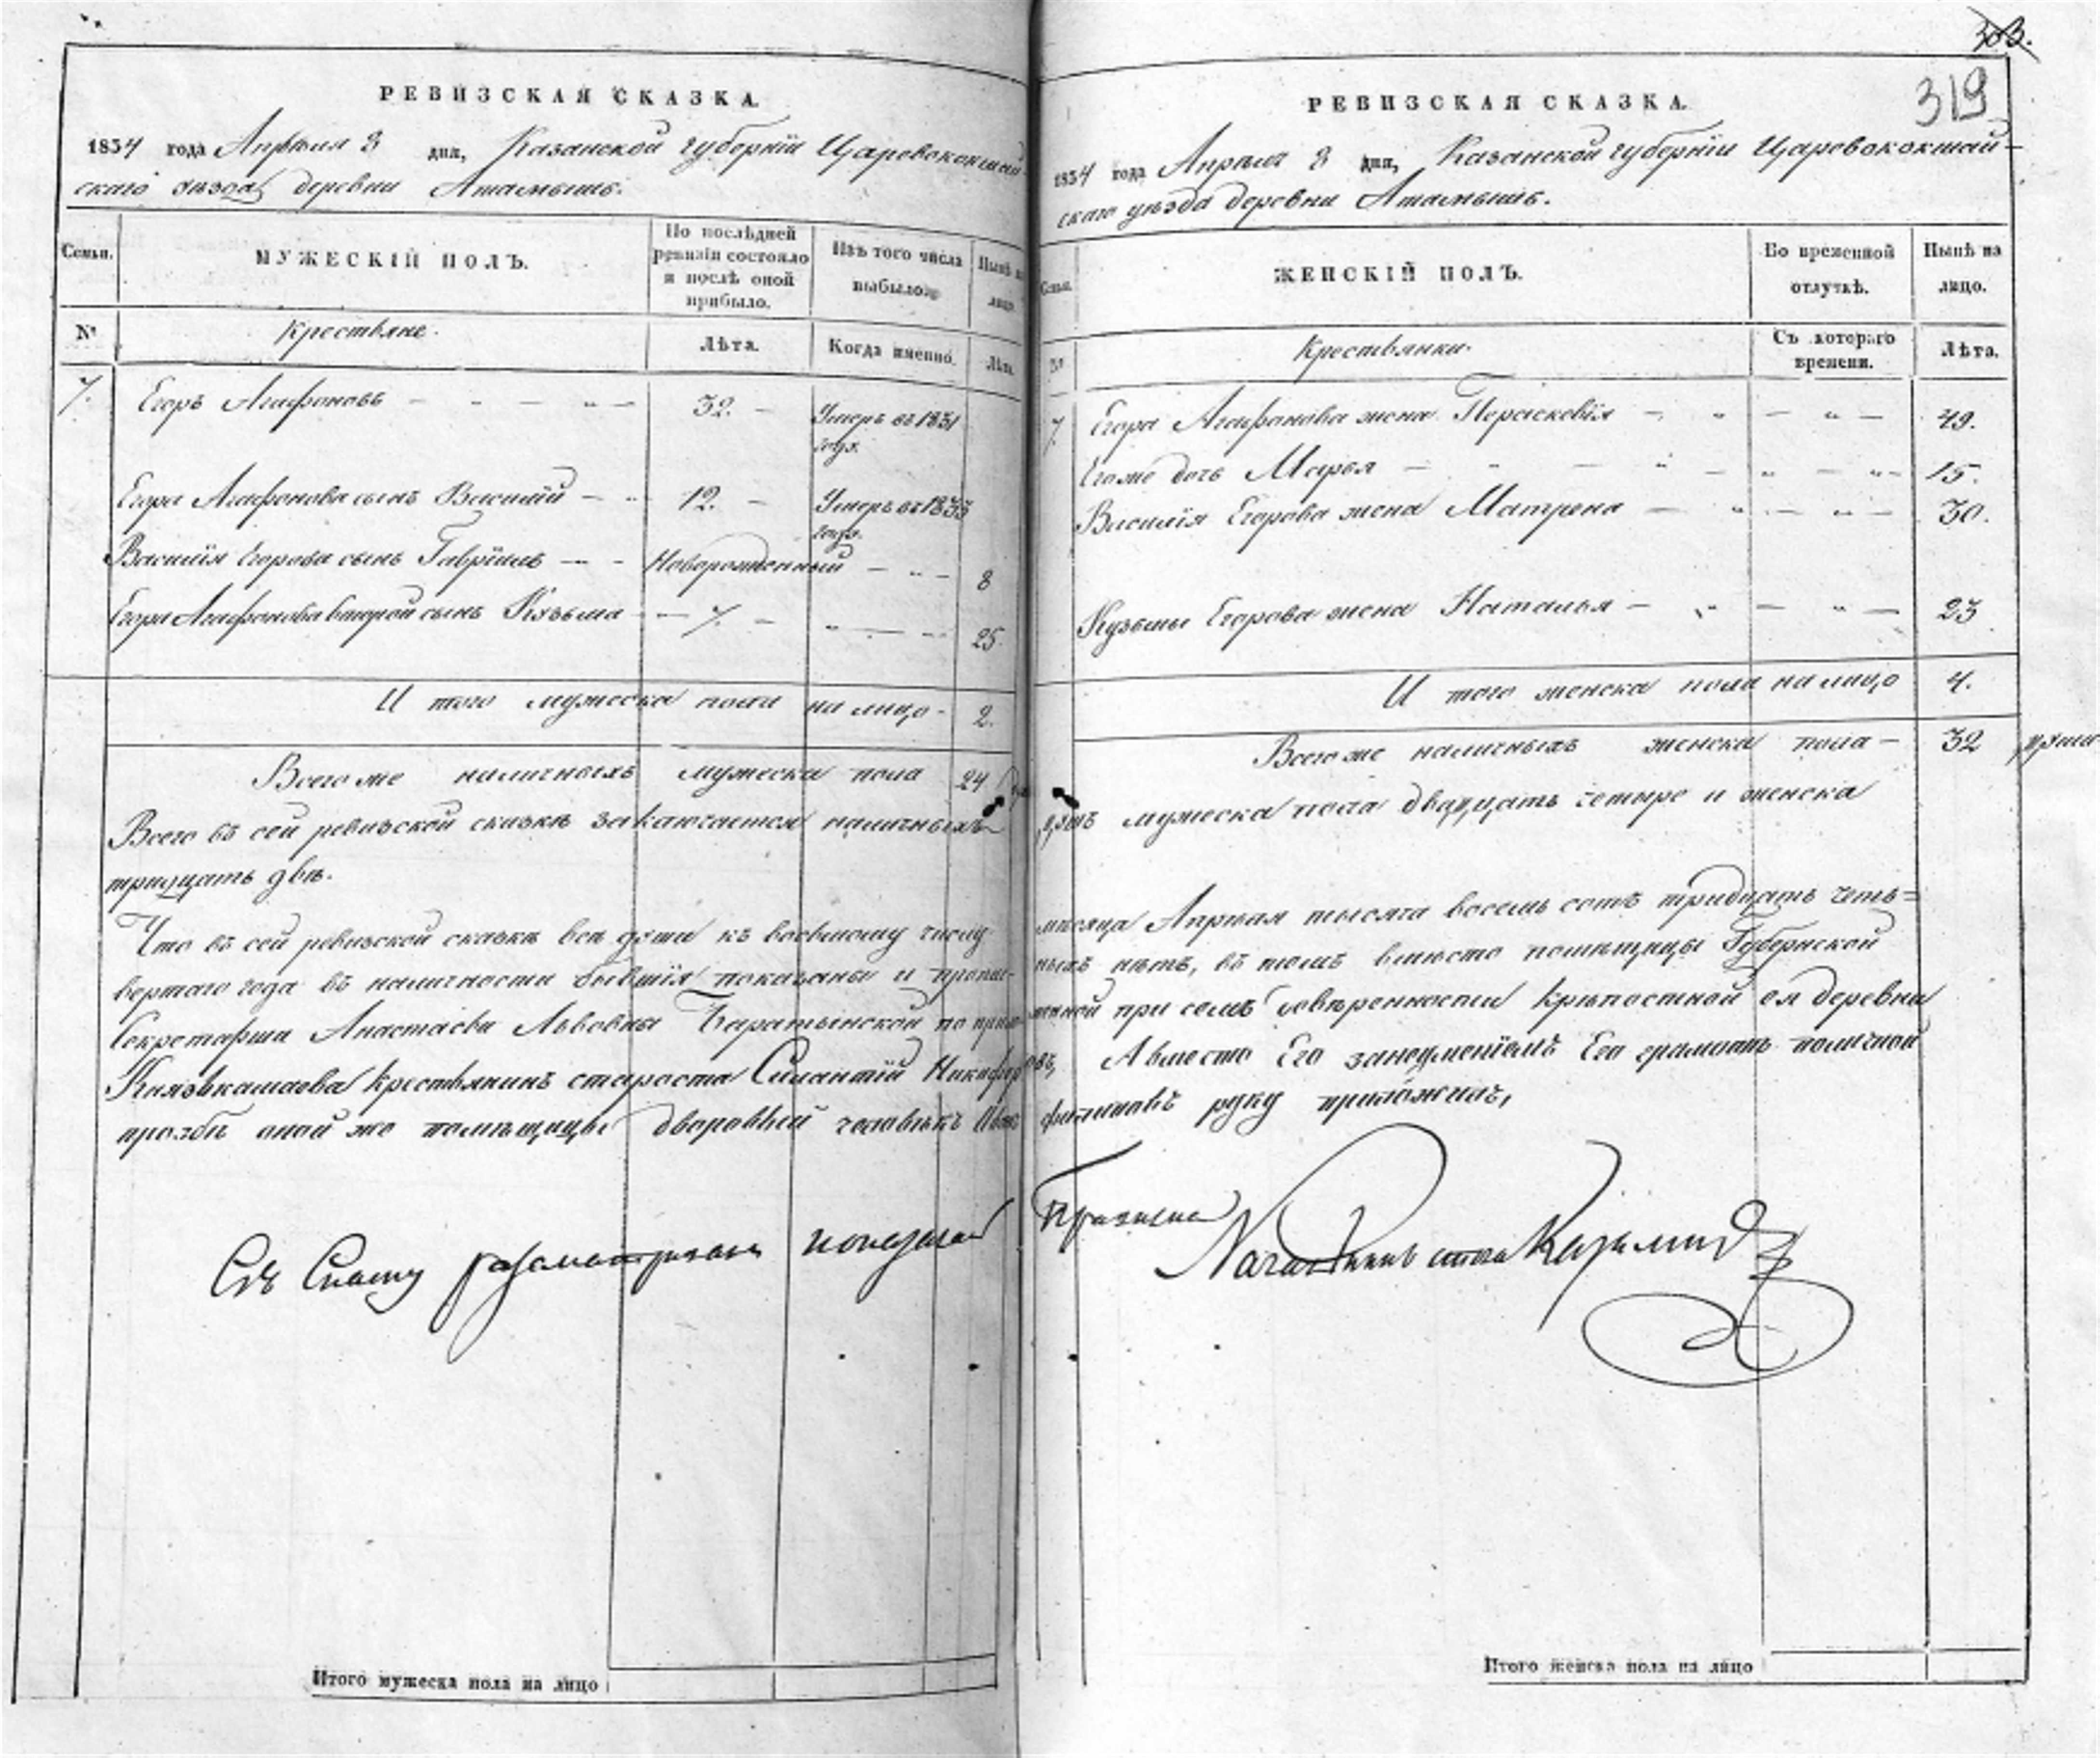 303.
319
РЕВИЗСКАЯ СКАЗКА.
1834 года Апрѣля 8 дня, Казанской губерніи Царевококшай
скаго уѣзда деревни Атамышъ.
Семьи.
МУЖЕСКІЙ ПОЛЪ.
По послѣдней
ревизіи состояло
и послѣ оной
прибыло.
Изъ того числа
выбыло.
Нынѣ на
лицо.
№
Крестьяне.
Лѣта.
Когда именно.
Лѣта.
7. Егоръ Агафоновъ — — — „ — 32. — Умеръ въ 1831
году.
Егора Агафонова сынъ Василий — „ 12. — Умеръ въ 1833
году.
Василія Егорова сынъ Гавріилъ — — Новорожденный — „ — 8
Егора Агафонова второй сынъ Кузьма — — 7. — „ — „ 25.
И того мужеска пола на лицо - 2.
Всего же наличныхъ мужеска пола 24
Всего въ сей ревизской сказкѣ заключается наличныхъ
тридцать двѣ.
Что въ сей ревизской сказкѣ всѣ души къ восьмому числу
вертаго года въ наличности бывшія показаны и
Секретарши Анастасіи Львовны Баратынской по
Князькашаова крестьянинъ староста Силантій Никифор
прозбѣ оной же помѣщицы дворовый человѣкъ Иванъ
Сію Сказку разсматривалъ
Итого мужеска пола на лицо
РЕВИЗСКАЯ СКАЗКА.
1834 года Апрѣля 8 дня, Казанской губерніи Царевококшай-
скаго уѣзда деревни Атамышъ.
Семьи.
ЖЕНСКІЙ ПОЛЪ.
Во временной
отлучкѣ.
Нынѣ на
лицо.
№
Крестьянки.
Съ котораго
времени.
Лѣта.
7. Егора Агафонова жена Пераскевія — „ — „ — 49.
Его же дочь Марья — „ — „ — „ — „ 15.
Василія Егорова жена Матрена — „ — „ — 30.
Кузьмы Егорова жена Наталья — „ — „ — 23
И того женска пола на лицо 4.
Всего же наличныхъ женска пола — 32 души
душъ мужеска пола двадцать четыре и женска
мѣсяца Апрѣля тысяча восемь сотъ тридцать чет-
ныхъ нѣтъ, въ томъ вмѣсто помѣщицы Губернской
при семъ довѣренности крѣпостной ея деревни
овъ, А вмѣсто Его за неумѣніемъ Его грамотѣ по личной
Филиповъ руку приложилъ,
Итого женска пола на лицо